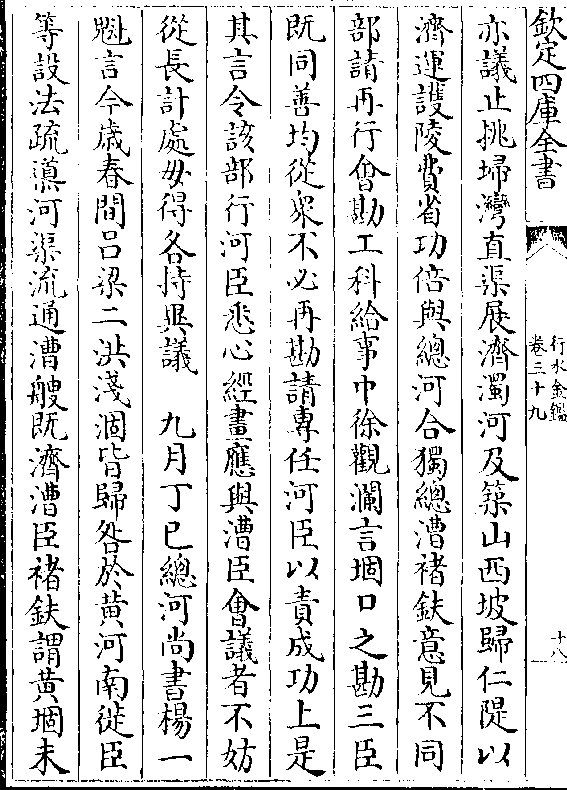 欽定四庫全書
行水金鑑
卷三十九
十八
亦議止挑埽灣直渠展濟濁河及築山西坡歸仁隄以
濟運護陵費省功倍與總河合獨總漕褚鈇意見不同
部請再行會勘工科給事中徐觀瀾言堌口之勘三臣
既同善均從衆不必再勘請專任河臣以責成功上是
其言令該部行河臣悉心經畫應與漕臣會議者不妨
從長計處毋得各持異議　九月丁巳總河尚書楊一
魁言今歲春間呂梁二洪淺涸皆歸咎於黄河南徙臣
等設法疏導河渠流通漕艘既濟漕臣褚鈇謂黄堌未